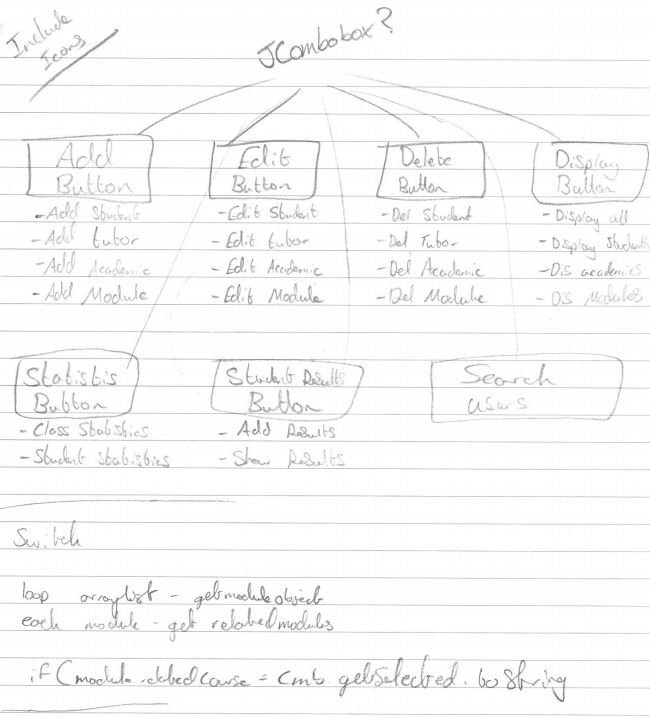 Include
Icons
JCombobox?
Add
Button
- Add Student
- Add tutor
- Add Academic
- Add Module
Edit
Button
- Edit Student
- Edit tutor
- Edit Academic
- Edit Module
Delete
Button
- Del Student
- Del Tutor
- Del Academic
- Del Module
Display
Button
- Display all
- Display Students
- Dis academics
- Dis Modules
Statistis
Button
- Class Statistics
- Student Statistics
Student Results
Button
- Add Results
- Show Results
Search
users
Switch
loop arraylist - getmoduleobject
each module - get relatedmodules
if (module.relatedCourse = cmb.getSelected.toString